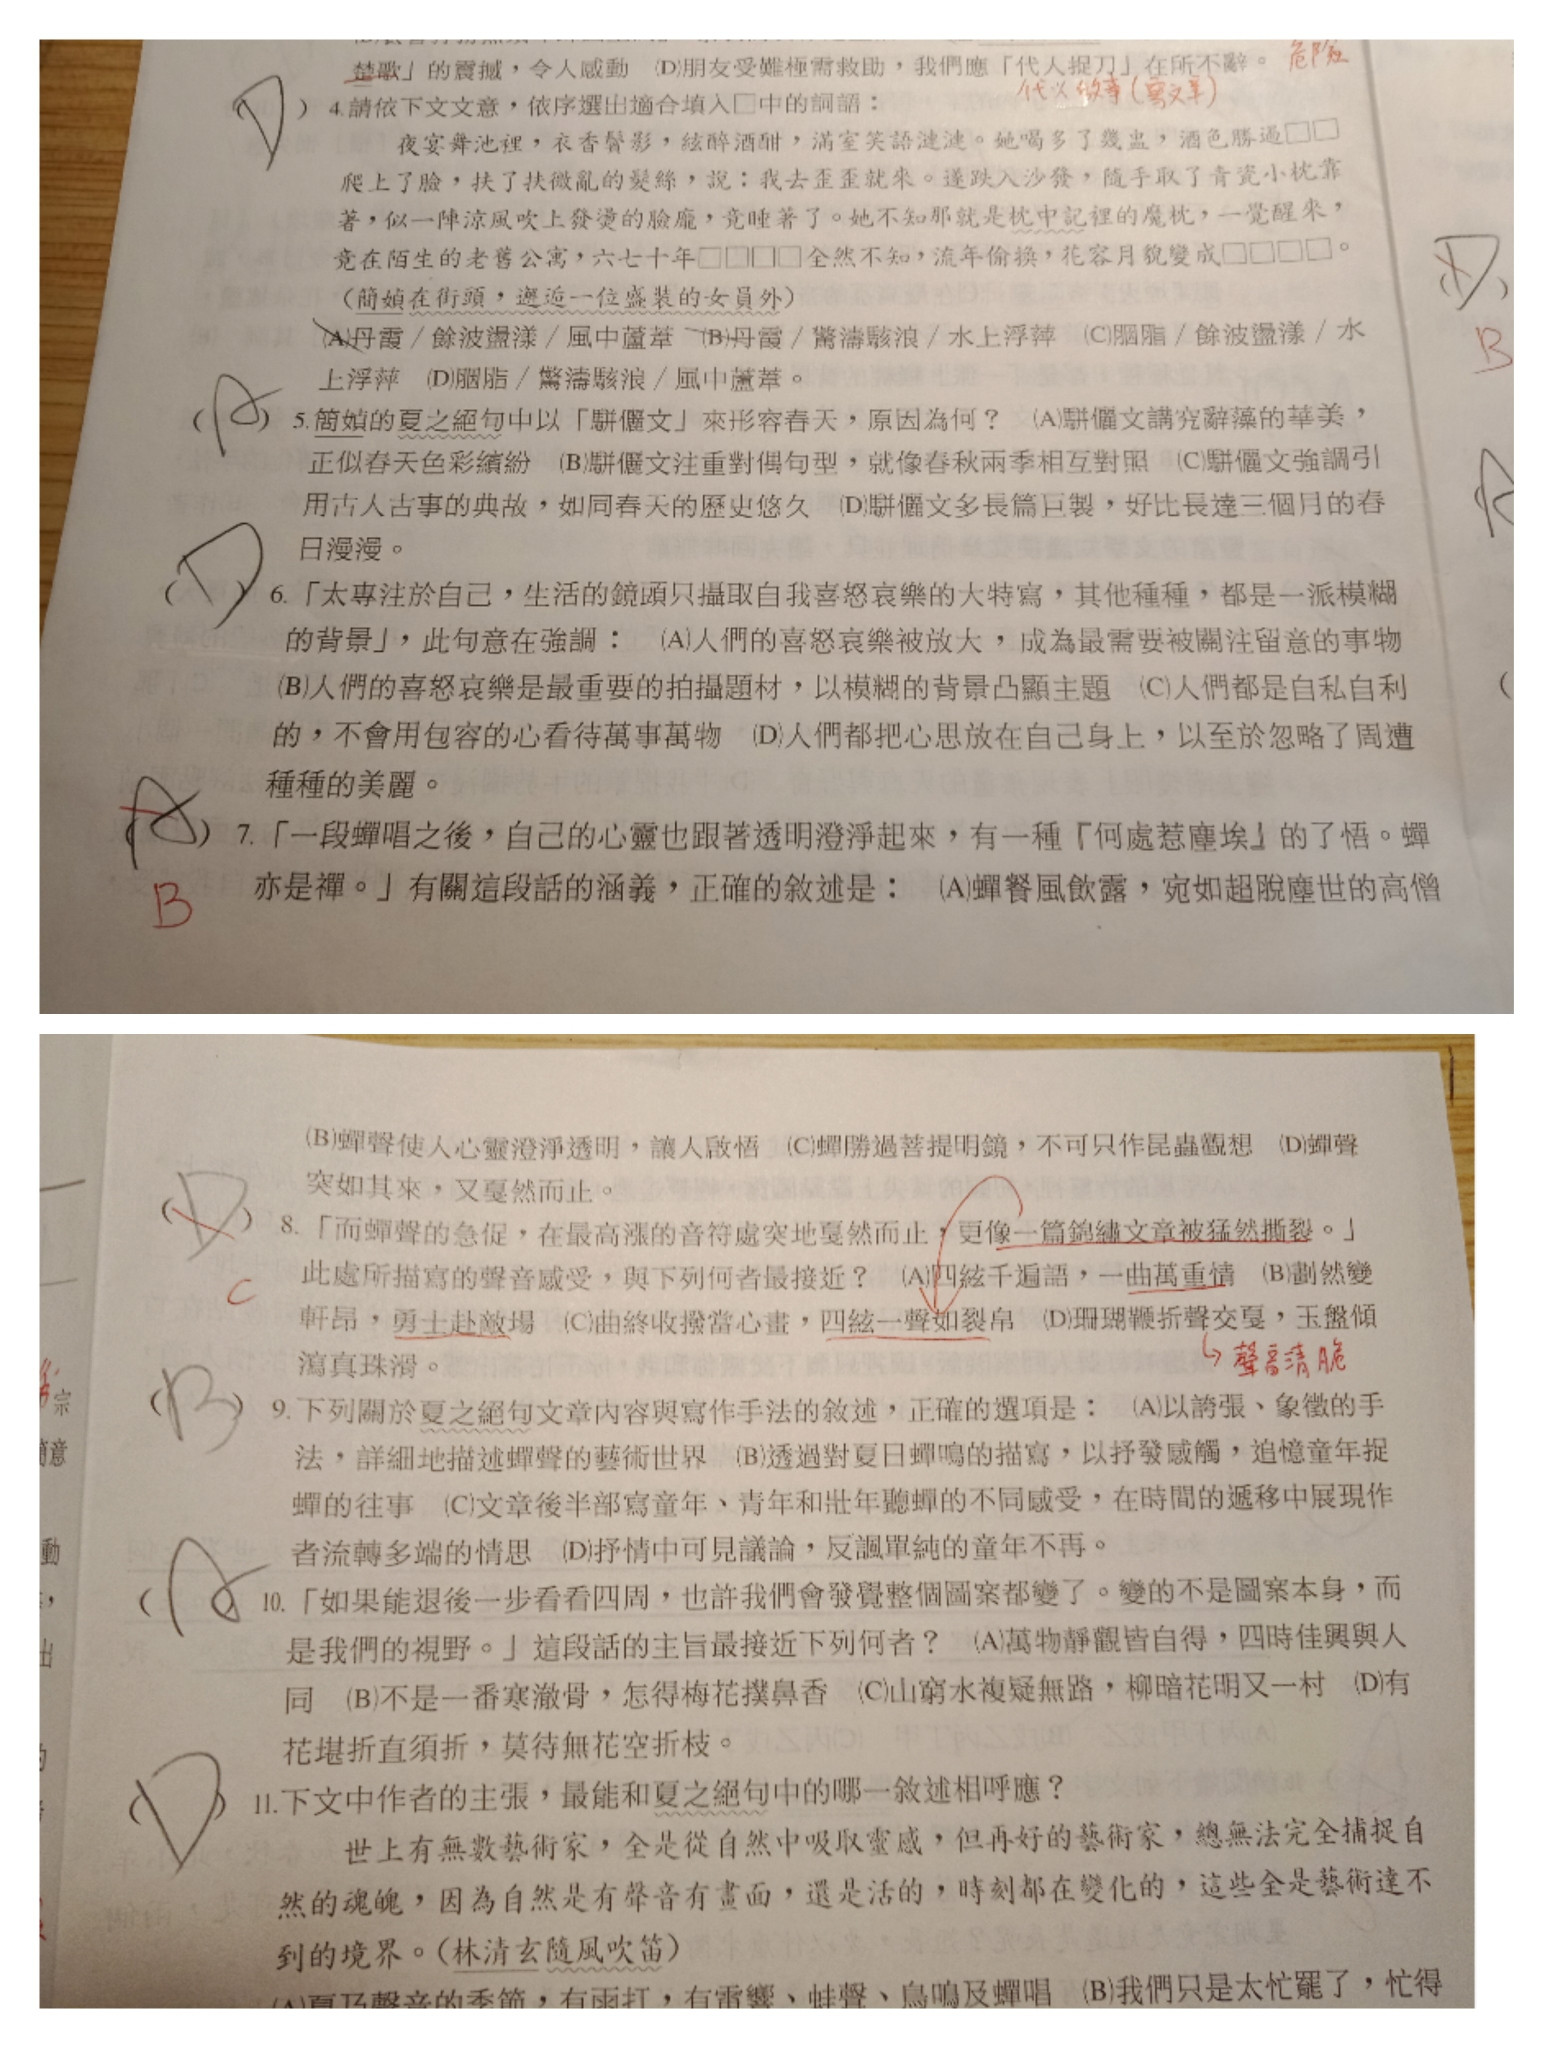 楚歌」的震撼，令人感動　(D)朋友受難極需救助，我們應「代人捉刀」在所不辭。 危險
代人做事(寫文章)
(D) 4.請依下文文意，依序選出適合填入□中的詞語：
夜宴舞池裡，衣香鬢影，絃醉酒酣，滿室笑語漣漣。她喝多了幾盅，酒色勝過□□
爬上了臉，扶了扶微亂的髮絲，說：我去歪歪就來。遂跌入沙發，隨手取了青瓷小枕靠
著，似一陣涼風吹上發燙的臉龐，竟睡著了。她不知那就是枕中記裡的魔枕，一覺醒來，
竟在陌生的老舊公寓，六七十年□□□□全然不知，流年偷換，花容月貌變成□□□□。
（簡媜在街頭，邂逅一位盛裝的女員外）
(A)丹霞／餘波盪漾／風中蘆葦　(B)丹霞／驚濤駭浪／水上浮萍　(C)胭脂／餘波盪漾／水
上浮萍　(D)胭脂／驚濤駭浪／風中蘆葦。
(A) 5.簡媜的夏之絕句中以「駢儷文」來形容春天，原因為何？　(A)駢儷文講究辭藻的華美，
正似春天色彩繽紛　(B)駢儷文注重對偶句型，就像春秋兩季相互對照　(C)駢儷文強調引
用古人古事的典故，如同春天的歷史悠久　(D)駢儷文多長篇巨製，好比長達三個月的春
日漫漫。
(D) 6.「太專注於自己，生活的鏡頭只攝取自我喜怒哀樂的大特寫，其他種種，都是一派模糊
的背景」，此句意在強調：　(A)人們的喜怒哀樂被放大，成為最需要被關注留意的事物
(B)人們的喜怒哀樂是最重要的拍攝題材，以模糊的背景凸顯主題　(C)人們都是自私自利
的，不會用包容的心看待萬事萬物　(D)人們都把心思放在自己身上，以至於忽略了周遭
種種的美麗。
(A) 7.「一段蟬唱之後，自己的心靈也跟著透明澄淨起來，有一種『何處惹塵埃』的了悟。蟬
B 亦是禪。」有關這段話的涵義，正確的敘述是：　(A)蟬餐風飲露，宛如超脫塵世的高僧
D
B
A
(B)蟬聲使人心靈澄淨透明，讓人啟悟　(C)蟬勝過菩提明鏡，不可只作昆蟲觀想　(D)蟬聲
突如其來，又戛然而止。
(D) 8.「而蟬聲的急促，在最高漲的音符處突地戛然而止，更像一篇錦繡文章被猛然撕裂。」
C 此處所描寫的聲音感受，與下列何者最接近？　(A)四絃千遍語，一曲萬重情　(B)劃然變
軒昂，勇士赴敵場　(C)曲終收撥當心畫，四絃一聲如裂帛　(D)珊瑚鞭折聲交戛，玉盤傾
瀉真珠滑。 聲音清脆
(B) 9.下列關於夏之絕句文章內容與寫作手法的敘述，正確的選項是：　(A)以誇張、象徵的手
法，詳細地描述蟬聲的藝術世界　(B)透過對夏日蟬鳴的描寫，以抒發感觸，追憶童年捉
蟬的往事　(C)文章後半部寫童年、青年和壯年聽蟬的不同感受，在時間的遞移中展現作
者流轉多端的情思　(D)抒情中可見議論，反諷單純的童年不再。
(A) 10.「如果能退後一步看看四周，也許我們會發覺整個圖案都變了。變的不是圖案本身，而
是我們的視野。」這段話的主旨最接近下列何者？　(A)萬物靜觀皆自得，四時佳興與人
同　(B)不是一番寒澈骨，怎得梅花撲鼻香　(C)山窮水複疑無路，柳暗花明又一村　(D)有
花堪折直須折，莫待無花空折枝。
(D) 11.下文中作者的主張，最能和夏之絕句中的哪一敘述相呼應？
世上有無數藝術家，全是從自然中吸取靈感，但再好的藝術家，總無法完全捕捉自
然的魂魄，因為自然是有聲音有畫面，還是活的，時刻都在變化的，這些全是藝術達不
到的境界。（林清玄隨風吹笛）
(A)夏乃聲音的季節，有雨打，有雷響、蛙聲、鳥鳴及蟬唱　(B)我們只是太忙罷了，忙得
宗
簡意
動
出